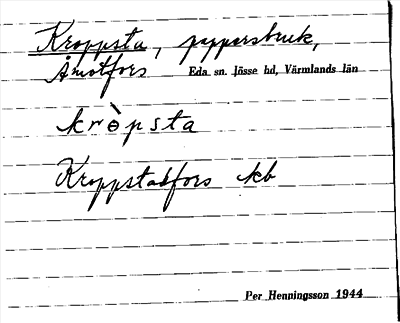 Kroppsta, pappersbruk,
Åmotfors Eda sn. Jösse hd, Värmlands län
kròpsta
Kroppstadfors kb
Per Henningsson 1944